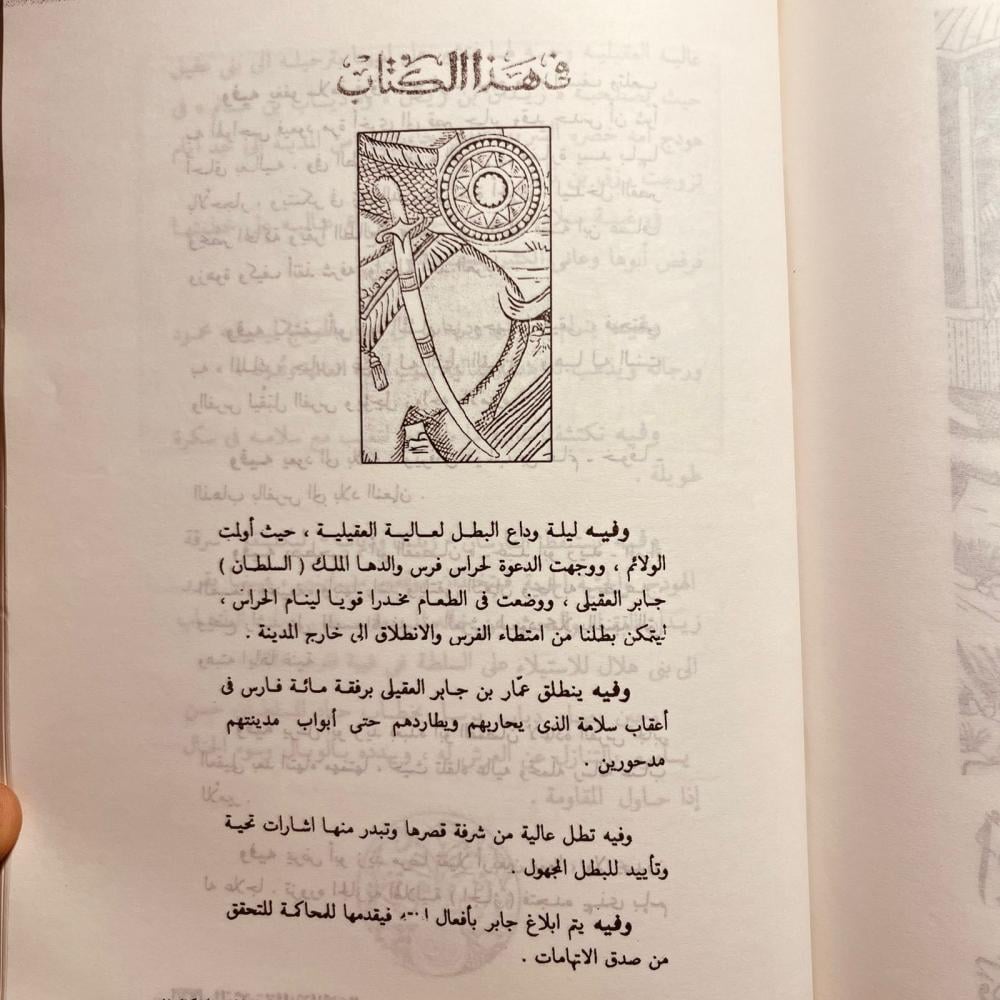 في هذا الكتاب
وفيـه ليلة وداع البطـل لعـاليـة العقيليـة ، حيث أولمت
الولائم ، ووجهت الدعوة لحراس فرس والدهـا الملك ( السلطـان )
جـابر العقيلى ، ووضعت فى الطعـام مخدرا قويـا لينـام الحراس ،
ليتمكن بطلنـا من امتطاء الفرس والانطلاق الى خارج المدينة .
وفيه ينطلق عمّار بن جـابر العقيلى برفقة مـائـة فـارس فى
أعقاب سلامة الذى يحاربهم ويطاردهم حتى أبواب مدينتهم
مدحورين .
وفيه تطل عالية من شرفة قصرها وتبدر منهـا اشارات تحيـة
وتأييد للبطل المجهول .
وفيه يتم ابلاغ جابر بأفعال فيقدمها للمحاكمة للتحقق
من صدق الاتهامات .